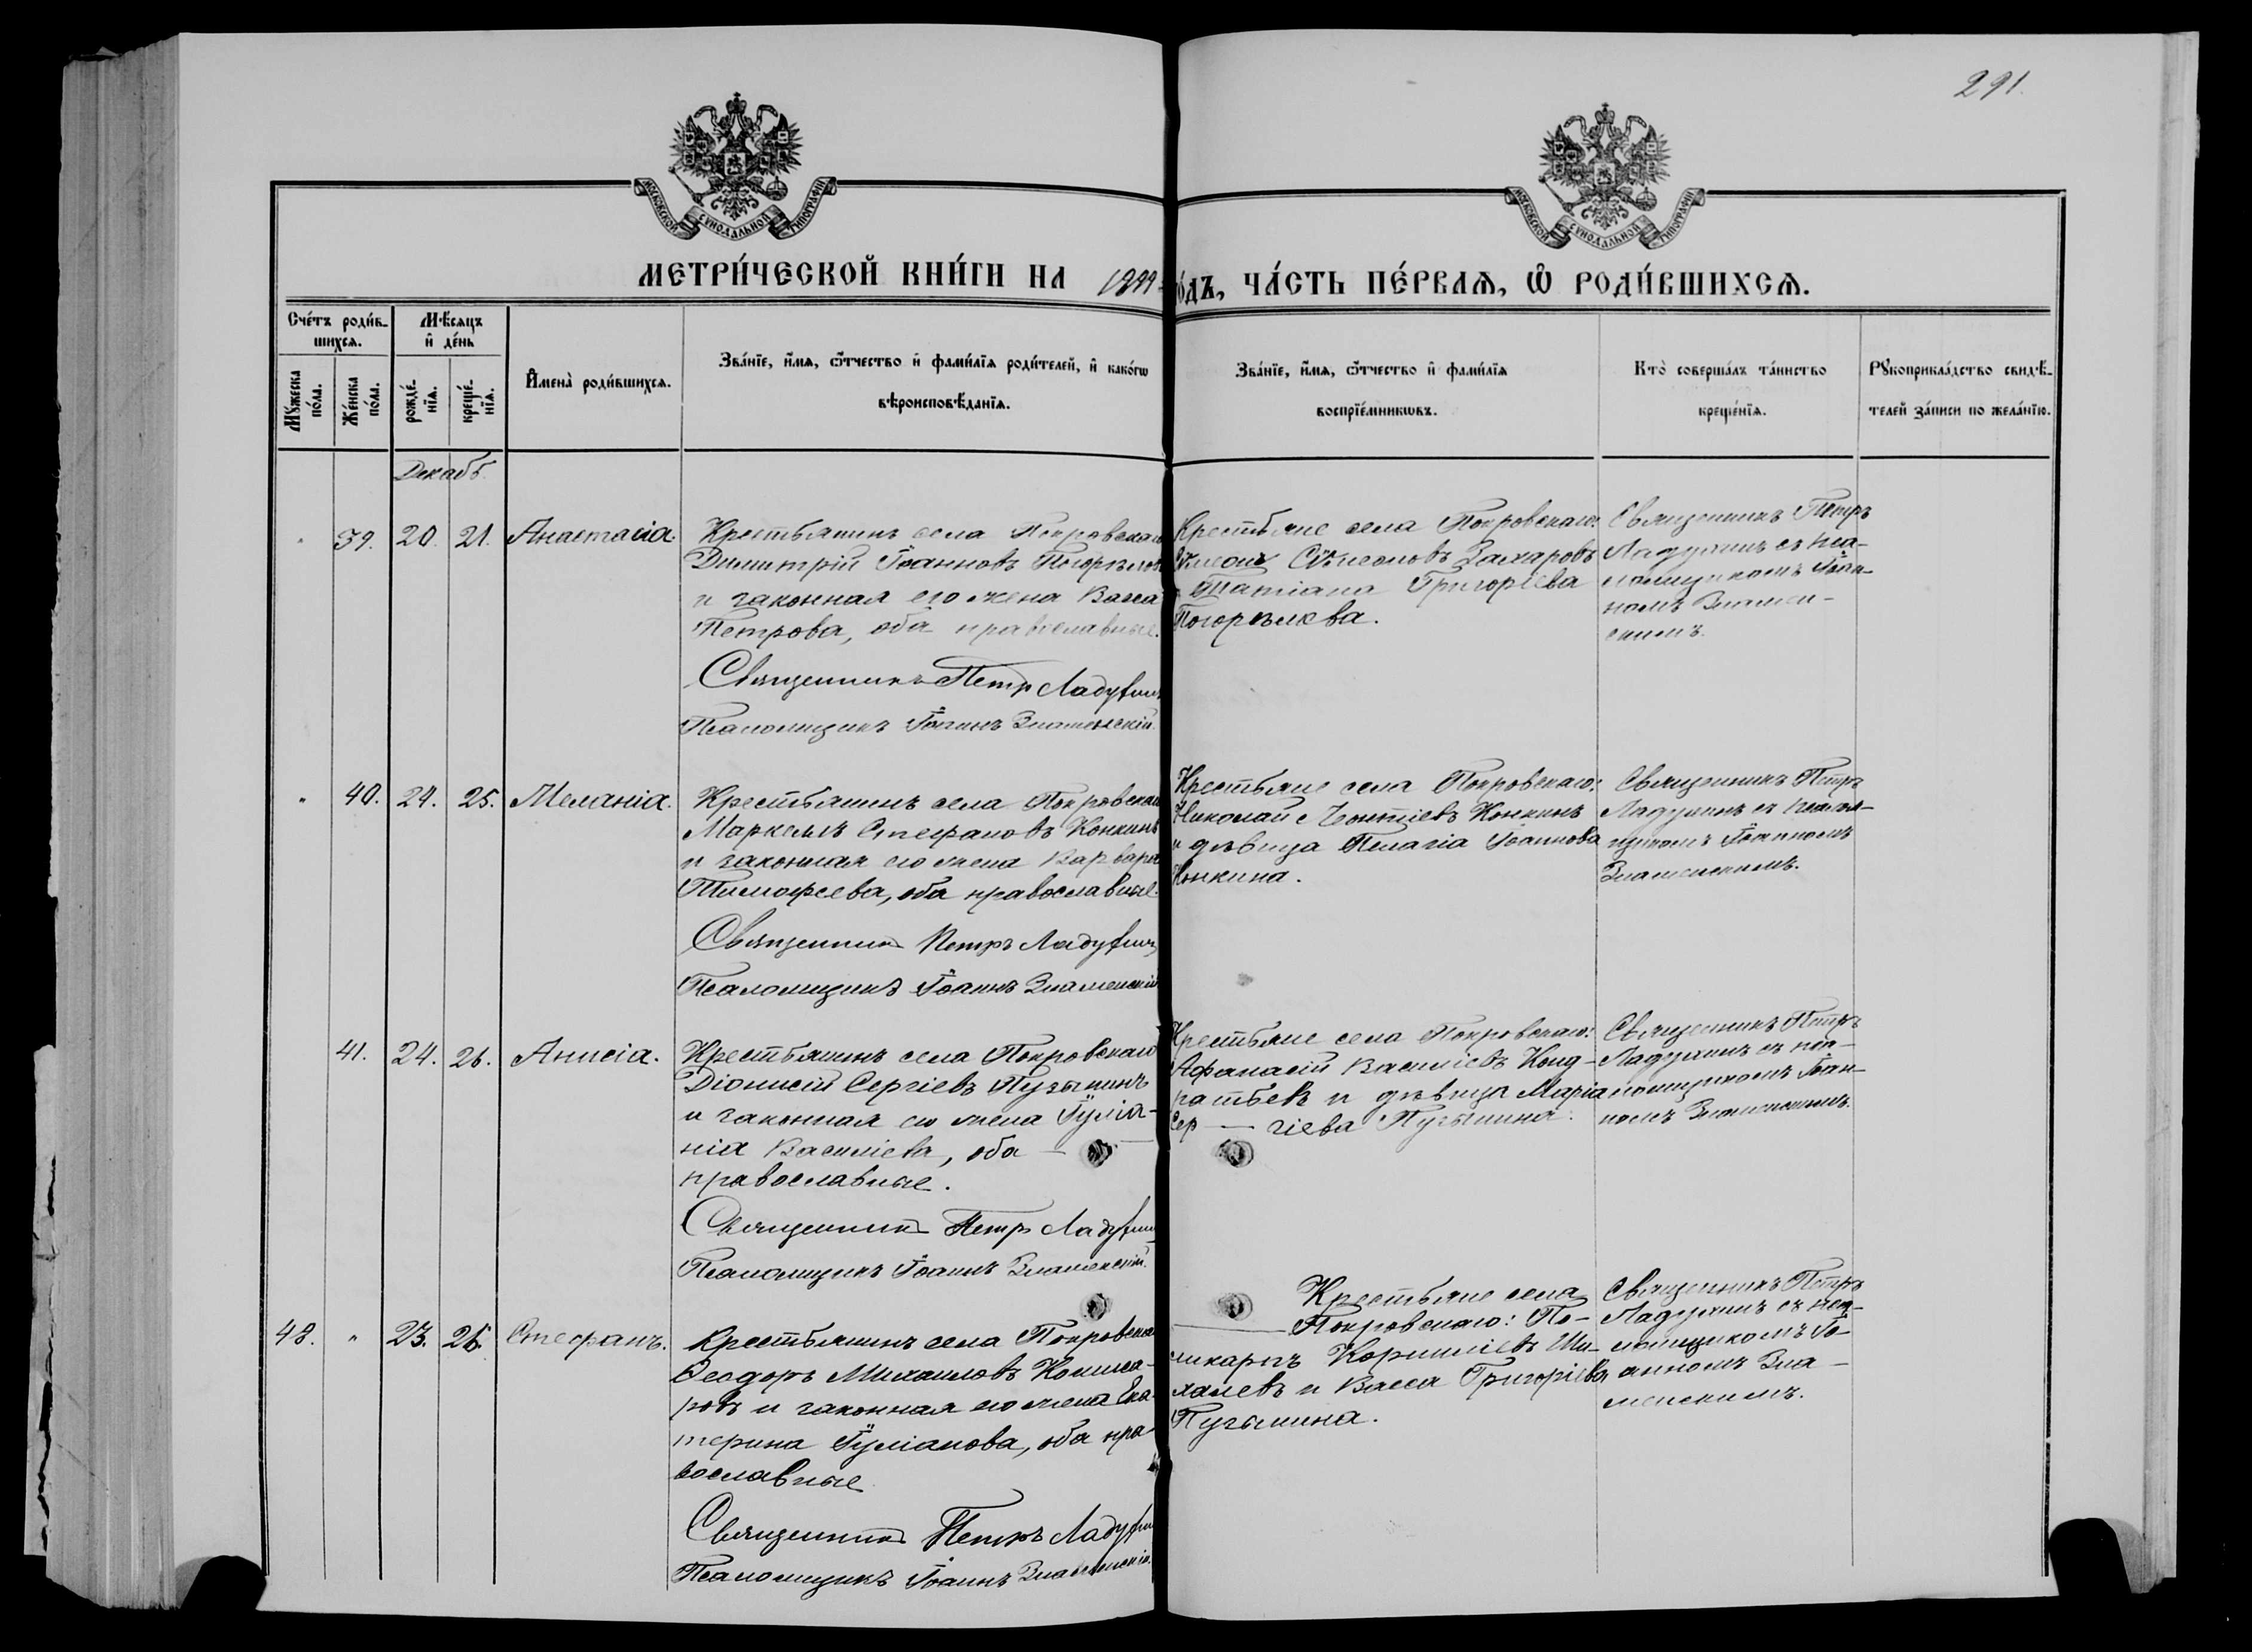 291.
МОСКОВСКОЙ СѴНОДАЛЬНОЙ ТИПОГРАФІИ
МОСКОВСКОЙ СѴНОДАЛЬНОЙ ТИПОГРАФІИ
МЕТРИ́ЧЕСКОЙ КНИ́ГИ НА 1899 го́дъ, ЧА́СТЬ ПЕ́РВАѦ, Ѽ РОДИ́ВШИХСѦ.
Сче́тъ роди́в-
шихсѧ.
Мꙋ́жеска по́ла.
Же́нска по́ла.
Мѣ́сѧцъ
и҆ де́нь
рожде́-
нїѧ.
креще́-
нїѧ.
И҆мена̀ роди́вшихсѧ.
Зва́нїе, и҆́мѧ, ѻ҆́тчество и҆ фами́лїѧ роди́телей, и҆ како́гѡ
вѣроисповѣ́данїѧ.
Зва́нїе, и҆́мѧ, ѻ҆́тчество и҆ фами́лїѧ
воспрїе́мникѡвъ.
Кто̀ соверша́лъ та́инство
креще́нїѧ.
Рꙋкоприкла́дство свидѣ́-
телей за́писи по жела́нїю.
Декабь
" 39. 20. 21. Анастасія.
Крестьянинъ села Покровскаго
Димитрій Іоанновъ Погорѣловъ
и законная его жена Васса
Петрова, оба православные.
Священникъ Петръ Ладухинъ
Псаломщикъ Іоаннъ Знаменскій.
Крестьяне села Покровскаго:
Сѵмеонъ Сѵмеоновъ Захаровъ
и Татіана Григоріева
Погорѣлова.
Священникъ Петръ
Ладухинъ съ пса-
ломщикомъ Іоан-
номъ Знамен-
скимъ.
" 40. 24. 25. Меланія.
Крестьянинъ села Покровскаго
Маркеллъ Стефановъ Конкинъ
и законная его жена Варвара
Тимофеева, оба православные.
Священникъ Петръ Ладухинъ
Псаломщикъ Іоаннъ Знаменскій
Крестьяне села Покровскаго:
Николай Леонтіевъ Конкинъ
и дѣвица Пелагія Іоаннова
Конкина.
Священникъ Петръ
Ладухинъ съ псалом-
щикомъ Іоанномъ
Знаменскимъ.
41. 24. 26. Анисія.
Крестьянинъ села Покровскаго
Діонисій Сергіевъ Пузынинъ
и законная его жена Іуліа-
нія Василіева, оба —
православные.
Священникъ Петръ Ладухинъ
Псаломщикъ Іоаннъ Знаменскій.
Крестьяне села Покровскаго:
Афанасій Василіевъ Конд-
ратьевъ и дѣвица Марія
Сер — гіева Пузынина.
Священникъ Петръ
Ладухинъ съ пса-
ломщикомъ Іоан-
номъ Знаменскимъ.
48. " 23. 26. Стефанъ.
Крестьянинъ села Покровска
Ѳеодоръ Михаиловъ Комиса-
ровъ и законная его жена Ека-
терина Іуліанова, оба пра-
вославные
Священникъ Петръ Ладухин
Псаломщикъ Іоаннъ Знаменскій.
Крестьяне села
Покровскаго: По-
ликарпъ Корниліевъ Ми-
халевъ и Васса Григоріева
Пузынина.
Священникъ Петръ
Ладухинъ съ пса-
ломщикомъ Іо-
анномъ Зна-
менскимъ.